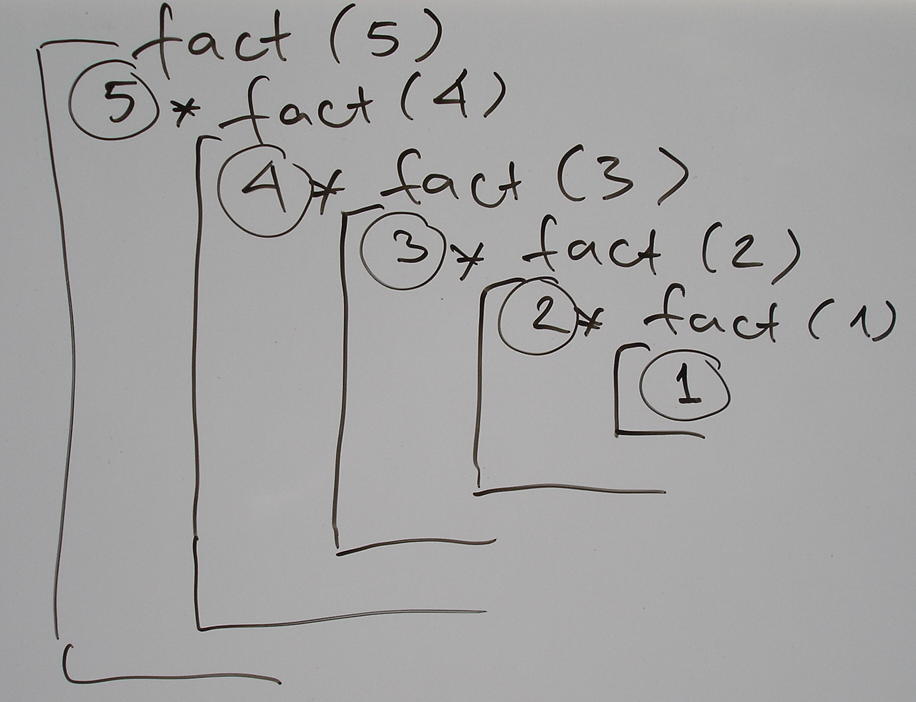 fact (5)
5 * fact (4)
4 * fact (3)
3 * fact (2)
2 * fact (1)
1